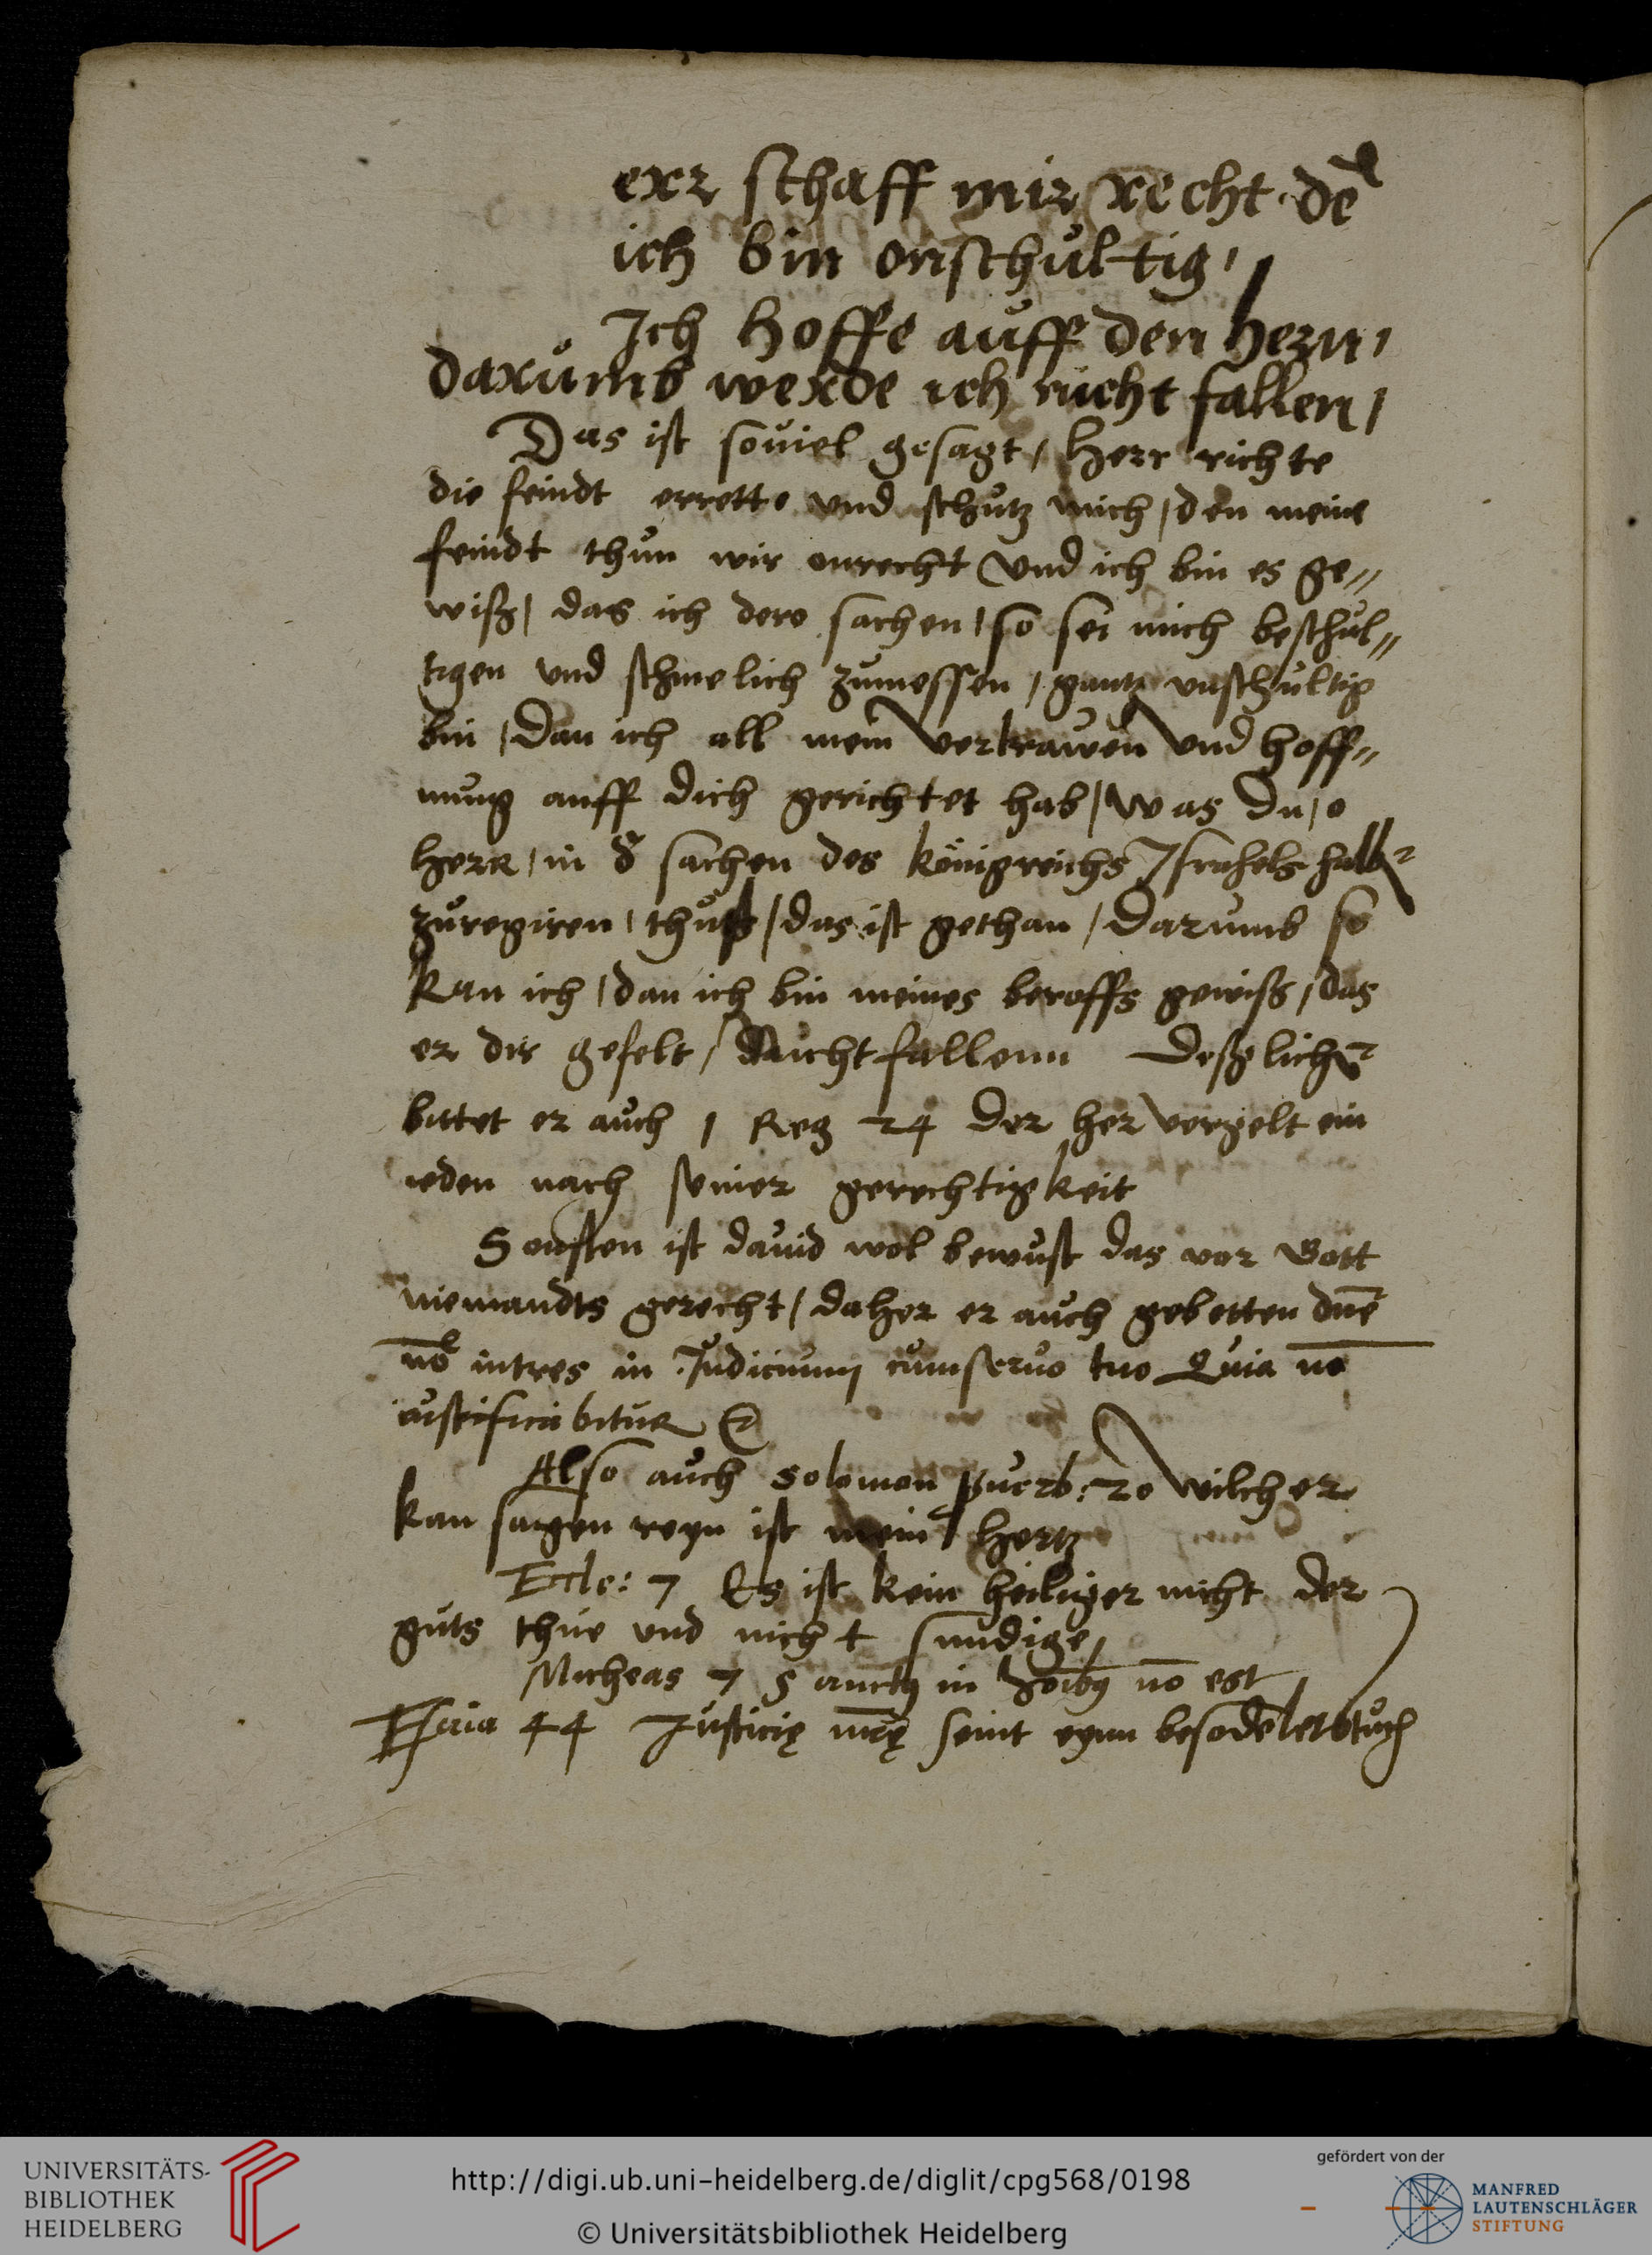 err schaff mir recht. dē
ich bin onschultig,
Ich hoffe auff den hern,
darumb werde ich nicht fallen,
Das ist souiel gesagt, herr richte
die feindt errette vnd schutz mich, den meine
feindt thun mir onrecht vnd ich bin es ge=
wiß, das ich dere sachen, so sei mich beschul=
tigen vnd schmelich zumessen, gantz vnschultig
bin, Dan ich all mein vertrawen vnd hoff=
nung auff dich gerichtet hab, was du, o
herr, in d sachen des königreichs Israhels halb
zuregiren, thust, das ist gethan, Darumb so
kan ich, dan ich bin meines beroffs gewiß, das
er dir gefelt, Nicht fallenn Deßglichē
bittet er auch 1 Reg 24 Der her vergelt ein
ieden nach seiner gerechtigkeit
Sonsten ist dauid wol bewust das vor Gott
niemandts gerecht, daher er auch gebetten dn̄e
nō intres in Judicium cum seruo tuo Quia nō
iustificabitur
Also auch Solomon puerb: 20 Wilcher
kan sagen reyn ist mein hertz
Eccle: 7 Es ist kein heiliger nicht der
guts thue vnd nicht sundige,
Micheas 7 Sanctus in hoībus nō est
Esaia 44 Justicię nr̄ę seint eynn besodelet btuch
UNIVERSITÄTS-
BIBLIOTHEK
HEIDELBERG
http://digi.ub.uni-heidelberg.de/diglit/cpg568/0198
© Universitätsbibliothek Heidelberg
gefördert von der
MANFRED
LAUTENSCHLÄGER
STIFTUNG